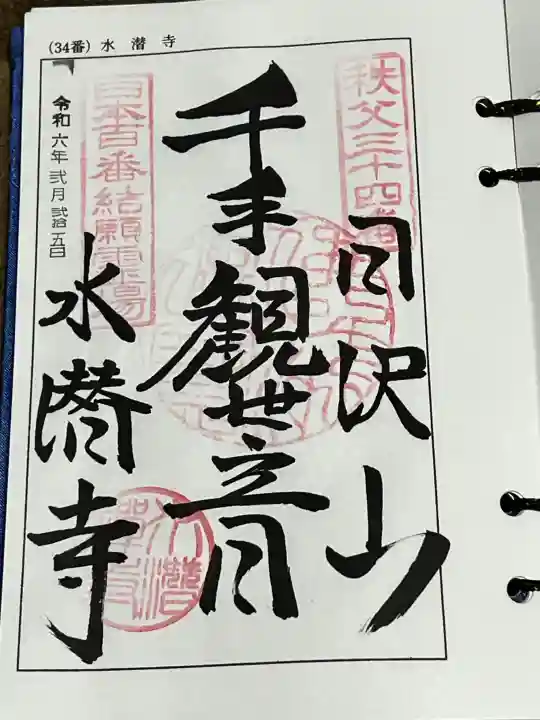 (34番) 水潜寺
秩父三十四番
日沢山
千手観世音
日本百番結願霊場
水潜寺
令和六年弐月弐拾五日